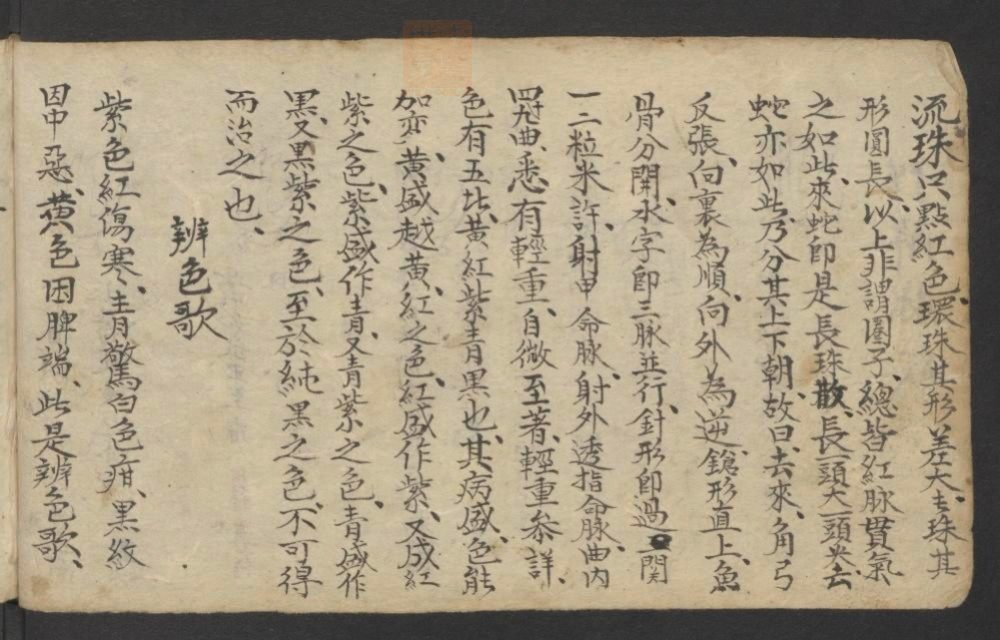 流珠只點紅色、環珠其形差大、長珠其
形圓長、以上非謂圈子、總皆紅脉貫氣
之如此、來蛇卽是長珠散、長一頭大一頭尖、去
蛇亦如此、乃分其上下朝、故曰去來、角弓
反張、向裏為順、向外為逆、鎗形直上、魚
骨分開、水字卽三脉並行、針形卽過一關
一二粒米許、射甲命脉、射外透指命脉、曲內
曲、悉有輕重、自微至著、輕重參詳、
色有五比、黃紅紫青黑也、其病盛、色能
加変、黃盛越黃、紅之色、紅盛作紫、又成紅
紫之色、紫盛作青、又青紫之色、青盛作
黑、又黑紫之色、至於純黑之色、不可得
而治之也、
辨色歌
紫色紅傷寒、青驚白色疳、黑紋
因中惡、黃色困脾端、此是辨色歌、